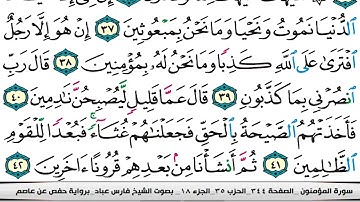 ٱلدُّنْيَا نَمُوتُ وَنَحْيَا وَمَا نَحْنُ بِمَبْعُوثِينَ ٣٧ إِنْ هُوَ إِلَّا رَجُلٌ
ٱفْتَرَىٰ عَلَى ٱللَّهِ كَذِبًا وَمَا نَحْنُ لَهُۥ بِمُؤْمِنِينَ ٣٨ قَالَ رَبِّ
ٱنصُرْنِي بِمَا كَذَّبُونِ ٣٩ قَالَ عَمَّا قَلِيلٍ لَّيُصْبِحُنَّ نَٰدِمِينَ ٤٠
فَأَخَذَتْهُمُ ٱلصَّيْحَةُ بِٱلْحَقِّ فَجَعَلْنَٰهُمْ غُثَآءً ۚ فَبُعْدًا لِّلْقَوْمِ
ٱلظَّٰلِمِينَ ٤١ ثُمَّ أَنشَأْنَا مِنۢ بَعْدِهِمْ قُرُونًا ءَاخَرِينَ ٤٢
سورة المؤمنون _ الصفحة ٣٤٤ _ الحزب ٣٥ _ الجزء ١٨ _ بصوت الشيخ فارس عباد _ برواية حفص عن عاصم